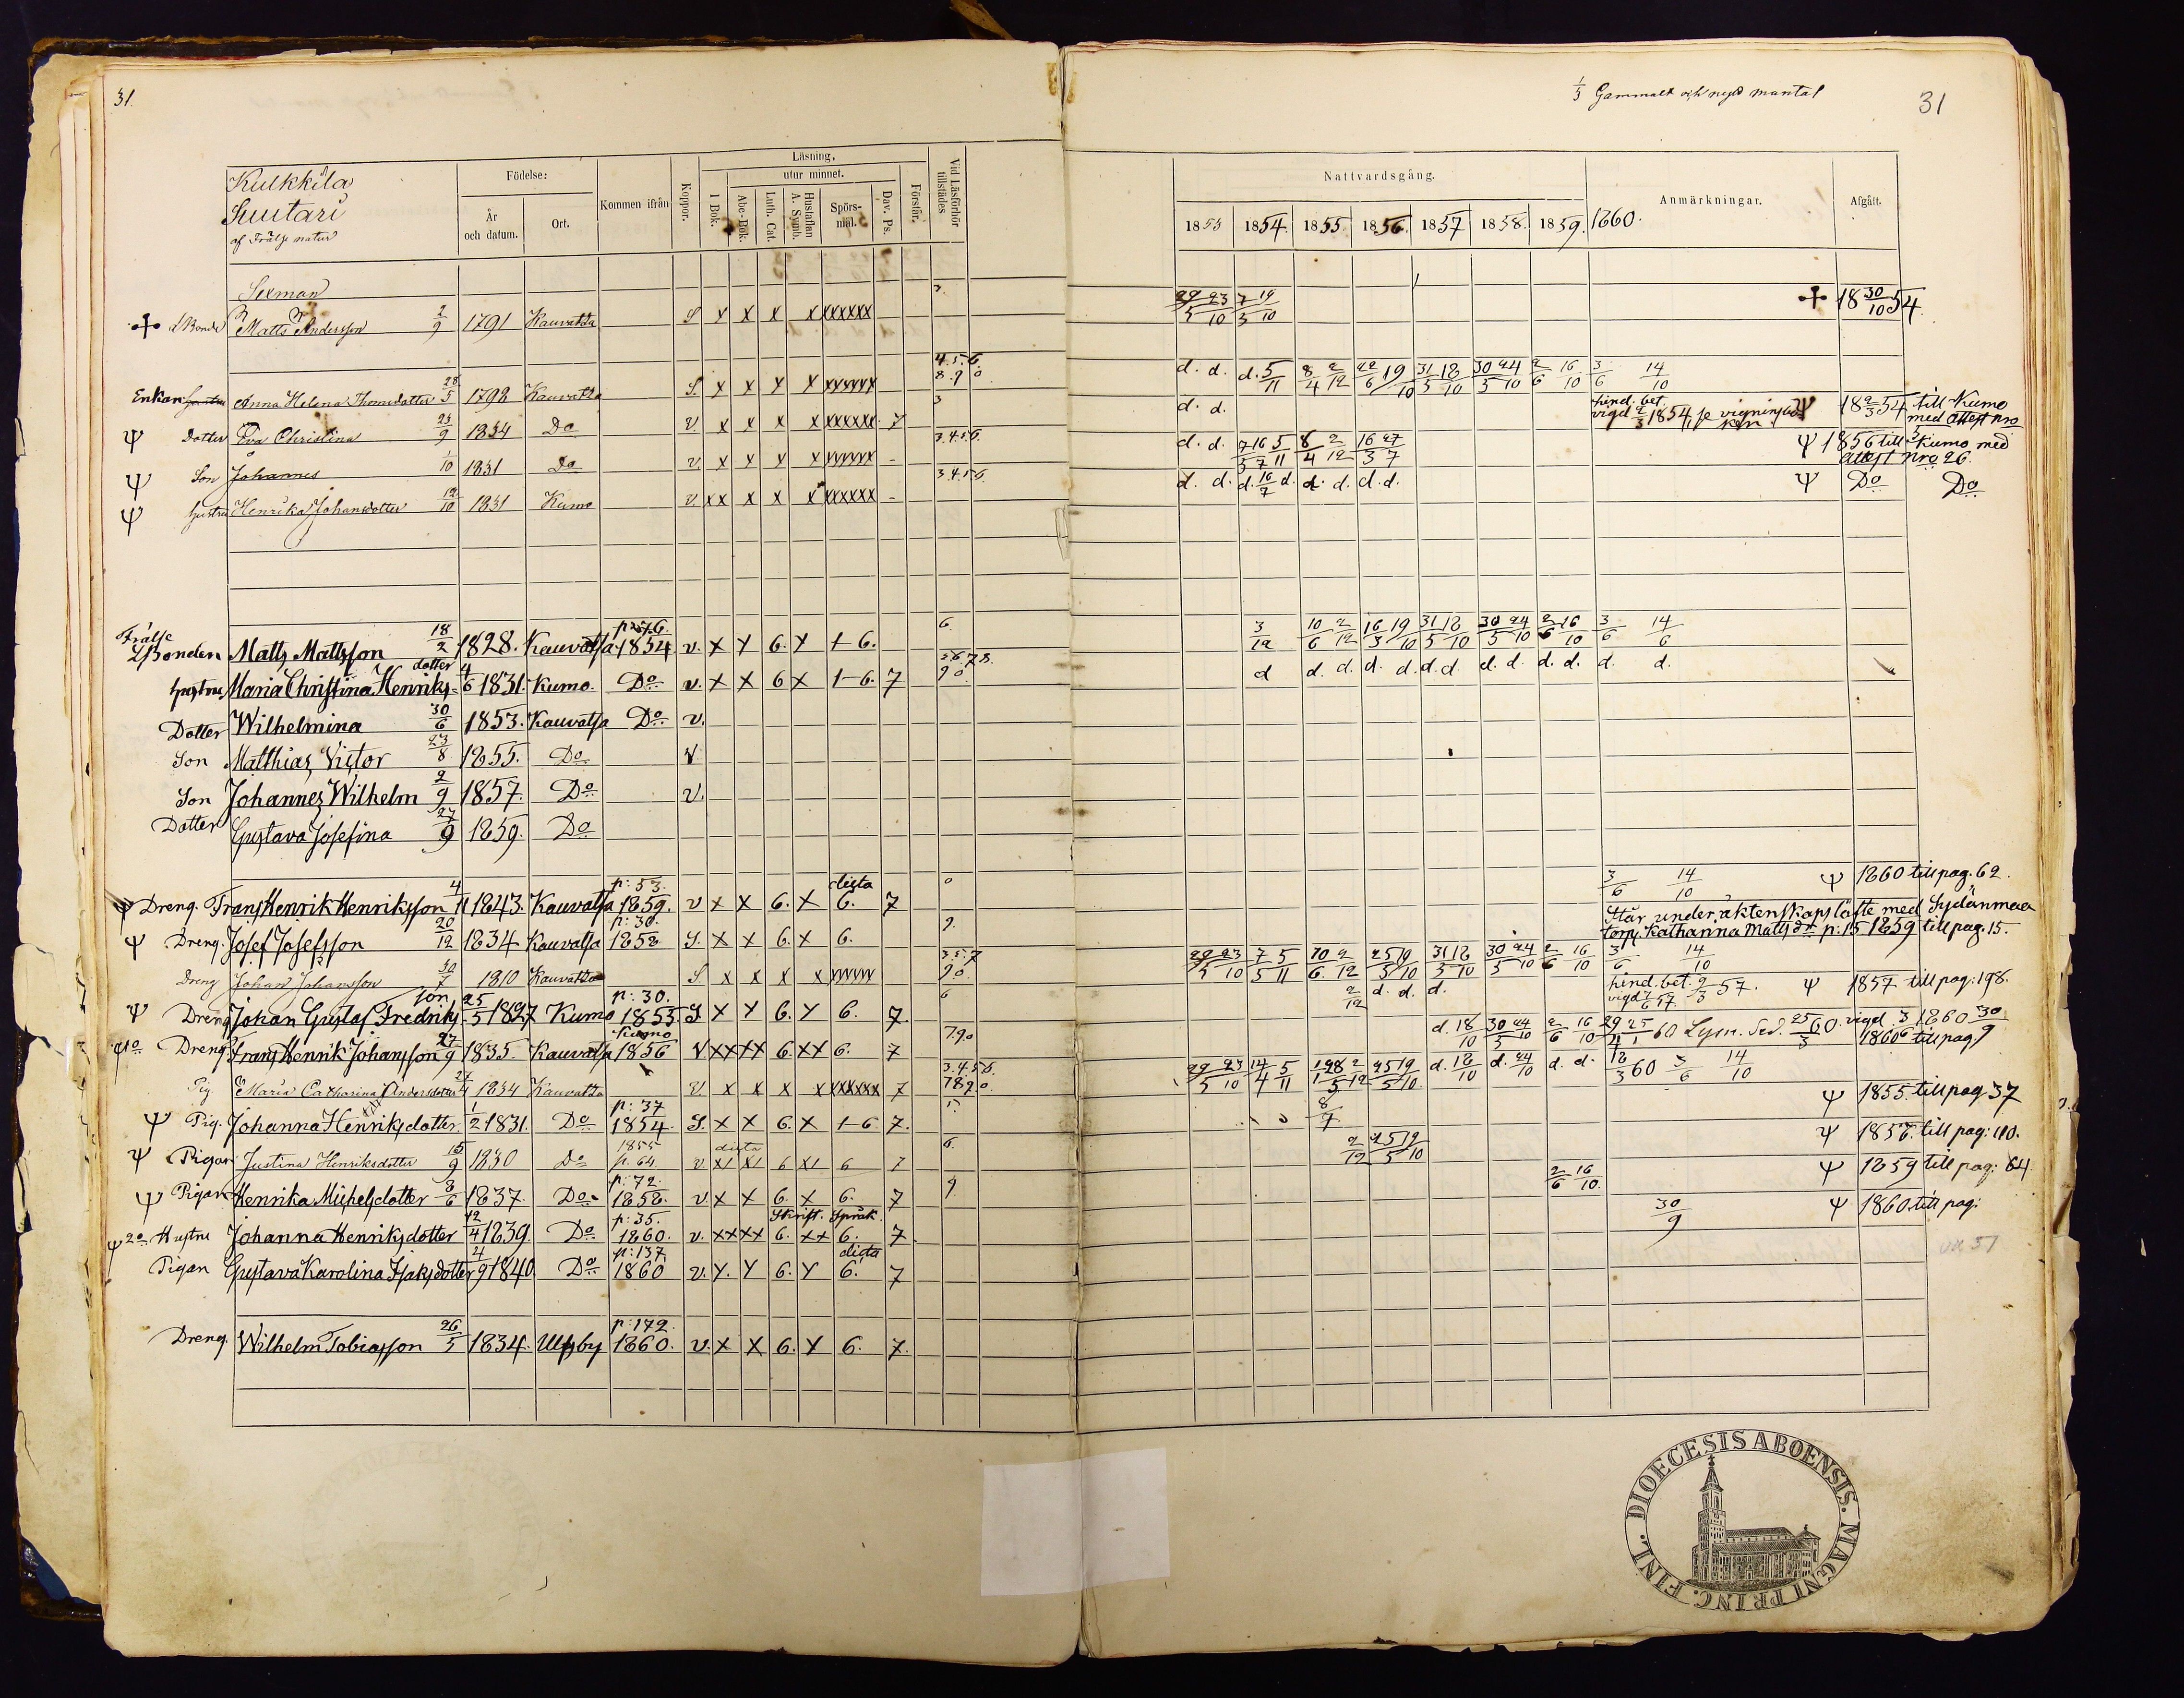 31.
1/3 Gammalt och nytt mantal
31
Kulkkila
Suutari
af Frälse natur
Födelse:
År och datum.
Ort.
Kommen ifrån
Koppor.
Läsning,
utur minnet.
I Bok.
Abc-Bok.
Luth. Cat.
Hustaflan A. Symb.
Spörsmål.
Dav. Ps.
Förstår.
Vid Läsförhör tillstädes
Nattvardsgång.
1853 1854. 1855. 1856. 1857 1858. 1859. 1860.
Anmärkningar.
Afgått.
Sexman
Bonde Matts Andersson 2/9 1791 Kauvatsa S x x x x xxxxxx 3. 29/5 23/10 7/5 19/10 18 30/10 54.
Enkan Anna Helena Thomedotter 28/5 1792 Kauvatsa S. x x x x xxxxxx 4.5.6. 8.9 0 d. d. d. 5/11 8/4 2/12 22/6 19/10 31/5 18/10 30/5 24/10 2/6 16/10 3/6 14/10
Dotter Eva Christina 23/9 1834 Do v. x x x x xxxxxx 7 3 d. d. hind. bet. vigd 2/3 1854, 18 2/3 54 till Kumo med attest nro 5
Son Johannes 1/10 1831 Do v. x x x x xxxxxx - 3.4.5.6. d. d. 7/5 16/7 5/11 8/4 2/12 16/3 27/7 1856 till Kumo med attest nro 26.
hustru Henrika Johansdotter 12/10 1831 Kumo v. xx x x x xxxxxx - 3.4.5.6 d. d. d. 16/7 d. d. d. d. d. Do Do
Frälse
Bonden Matts Mattsson 18/2 1828. Kauvatsa 1854 v. x x 6. x 1-6. 6. 3/12 10/6 2/12 16/3 19/10 31/5 18/10 30/5 24/10 2/6 16/10 3/6 14/6
hustru Maria Christina Henriksdotter 4/6 1831. Kumo. Do v. x x 6 x 1-6. 7 5.6.7.8. 9 0. d d. d. d. d. d. d. d. d. d. d. d. d.
Dotter Wilhelmina 30/6 1853. Kauvatsa Do v.
Son Matthias Victor 23/8 1855. Do v
Son Johannes Wilhelm 2/9 1857. Do v.
Dotter Gustava Josefina 27/9 1859. Do
Dreng. Frans Henrik Henriksson 4/11 1843. Kauvatsa p: 53. 1859. v x x 6. x dista 6. 7 0 3/6 14/10 1860 till pag. 62.
Dreng. Josef Josefsson 20/12 1834 Kauvatsa p: 30. 1858 S. x x 6. x 6. 9. Står under äktenskaps löfte med Sydänmaa torp. Kathanna Matts dr p: 15 1859 till pag. 15.
Dreng Johan Johansson 30/7 1810 Kauvatsa S x x x x xxxxxx 3.5.7 9 0. 29/5 23/10 7/5 5/11 10/6 2/12 25/5 19/10 31/5 18/10 30/5 24/10 2/6 16/10 3/6 14/10
Dreng Johan Gustaf Fredriksson 25/5 1827 Kumo p: 30. 1855. S x x 6. x 6. 7. 6 2/12 d. d. d. hind. bet. 2/3 57. 1857 till pag: 198.
Dreng Frans Henrik Johansson 27/9 1835. Kauvatsa Kumo 1856 v xx xx 6. xx 6. 7 7.9.0 d. 18/10 30/5 24/10 2/6 16/10 Lysn. Sed. 25/3 60. 1860 till pag
Pig. Maria Catharina Andersdotter 27/4 1834 Kauvatsa v x x x x xxxxxx 7 3.4.5.6. 7 8 9 0. 29/5 23/10 14/4 5/11 25/5 19/10 d. 18/10 d. 24/10 d. d. 18/3 60 3/6 14/10
Pig. Johanna Henriksdotter 1/2 1831. Do p: 37 1854. S. x x 6. x 1-6. 7. 5. 8/7 1855. till pag 37
Pigan Justina Henriksdotter 15/9 1830 Do 1855 p. 64 v x1 x1 dista 6 x1 6 7 6. 2/12 25/5 19/10 1856. till pag: 110.
Pigan Henrika Michelsdotter 8/6 1837. Do p: 72. 1858. v x x 6. x 6. 7 9 2/6 16/10. 1859 till pag: 64.
2o Hustru Johanna Henriksdotter 12/4 1839. Do p: 35. 1860. v. xx xx Skrift. Språk. 6. xx 6. 7. 30/9 1860. till pag:
Pigan Gustava Karolina Isaksdotter 4/9 1840. Do p: 137. 1860 v. x. x 6. x dista 6. 7
Dreng. Wilhelm Tobiasson 26/5 1834. Ulfsby p: 172. 1860. v. x x 6. x 6. 7.
DIOECESIS ABOENSIS. MAGNI PRINC. FINL.